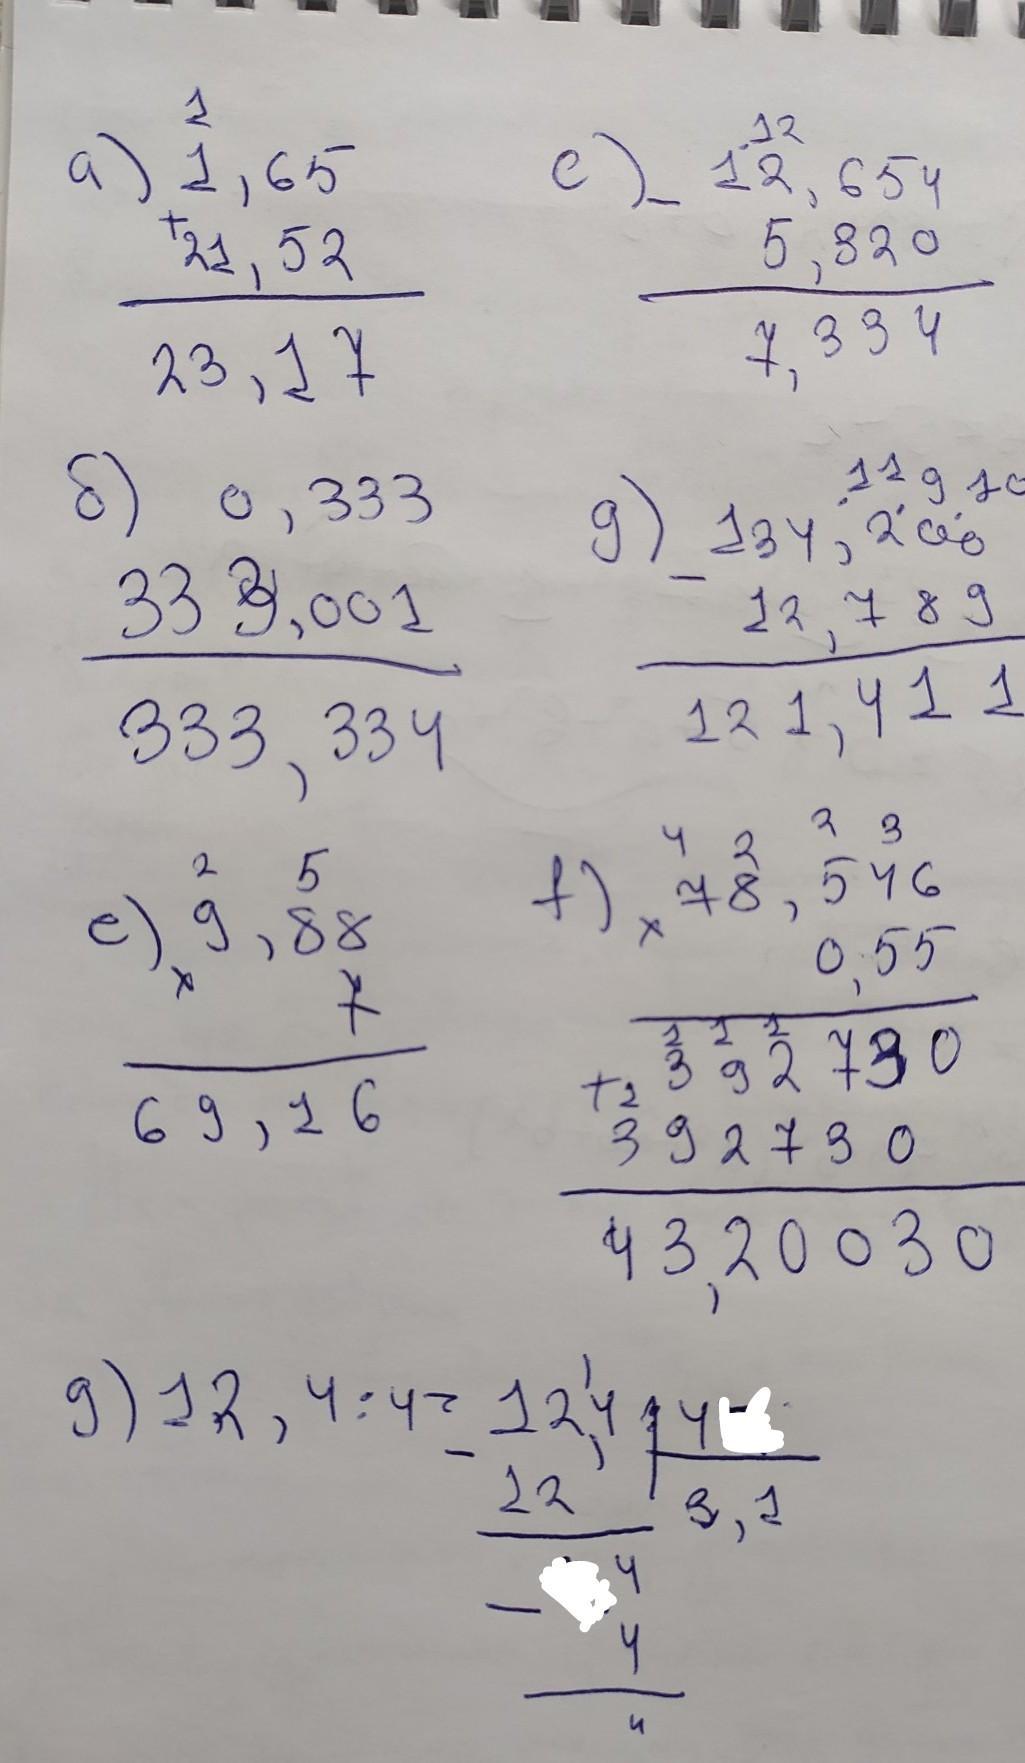 а) 1
1,65
+
21,52
23,17
c) 12
- 12,654
5,320
7,334
б) 0,333
333,001
333,334
g) 11 9 10
- 134,200
12,789
121,411
e) 2 5
9,88
x 7
69,16
f) 4 2 2 3
x 78,546
0,55
1 1 1
392730
+ 1
392730
43,20030
g) 12,4:4= 12,4 4
- 12 3,1
- 4
4
4